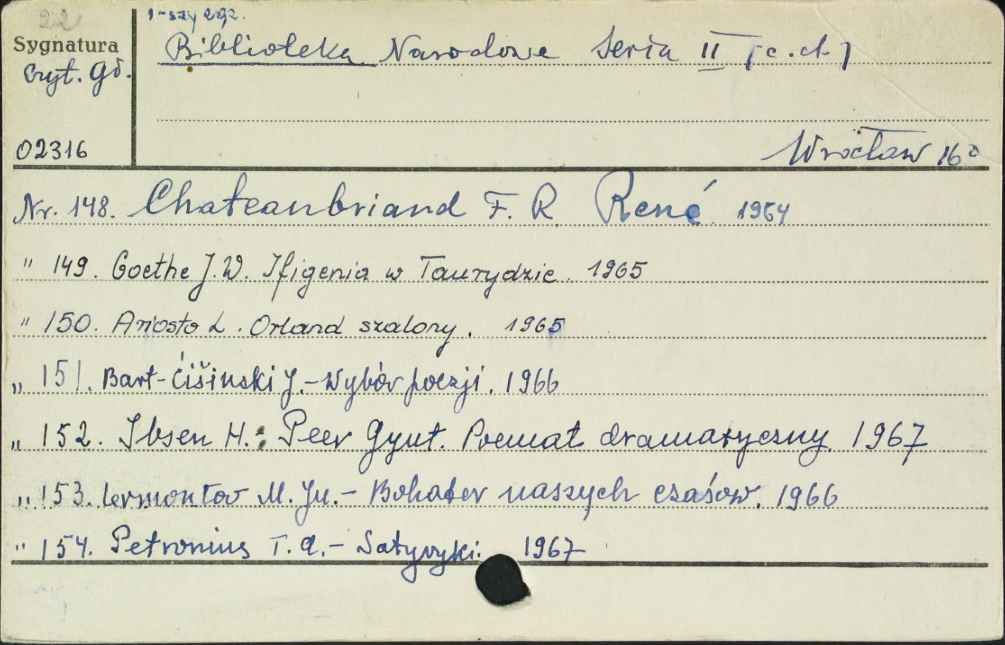 22
1-szy egz.
Sygnatura
Czyt. Gł.
02316
Biblioteka Narodowa Seria II [c.d.]
Wrocław 16°
Nr. 148. Chateaubriand F. R. René. 1964
" 149. Goethe J. W. Ifigenia w Taurydzie. 1965
" 150. Ariosto L. Orland szalony. 1965
" 151. Bart-Ćišinski J. - Wybór poezji. 1966
" 152. Ibsen H.: Peer Gynt. Poemat dramatyczny 1967
" 153. Lermontov M. Ju. - Bohater naszych czasów. 1966
" 154. Petronius T. A. - Satyryki. 1967